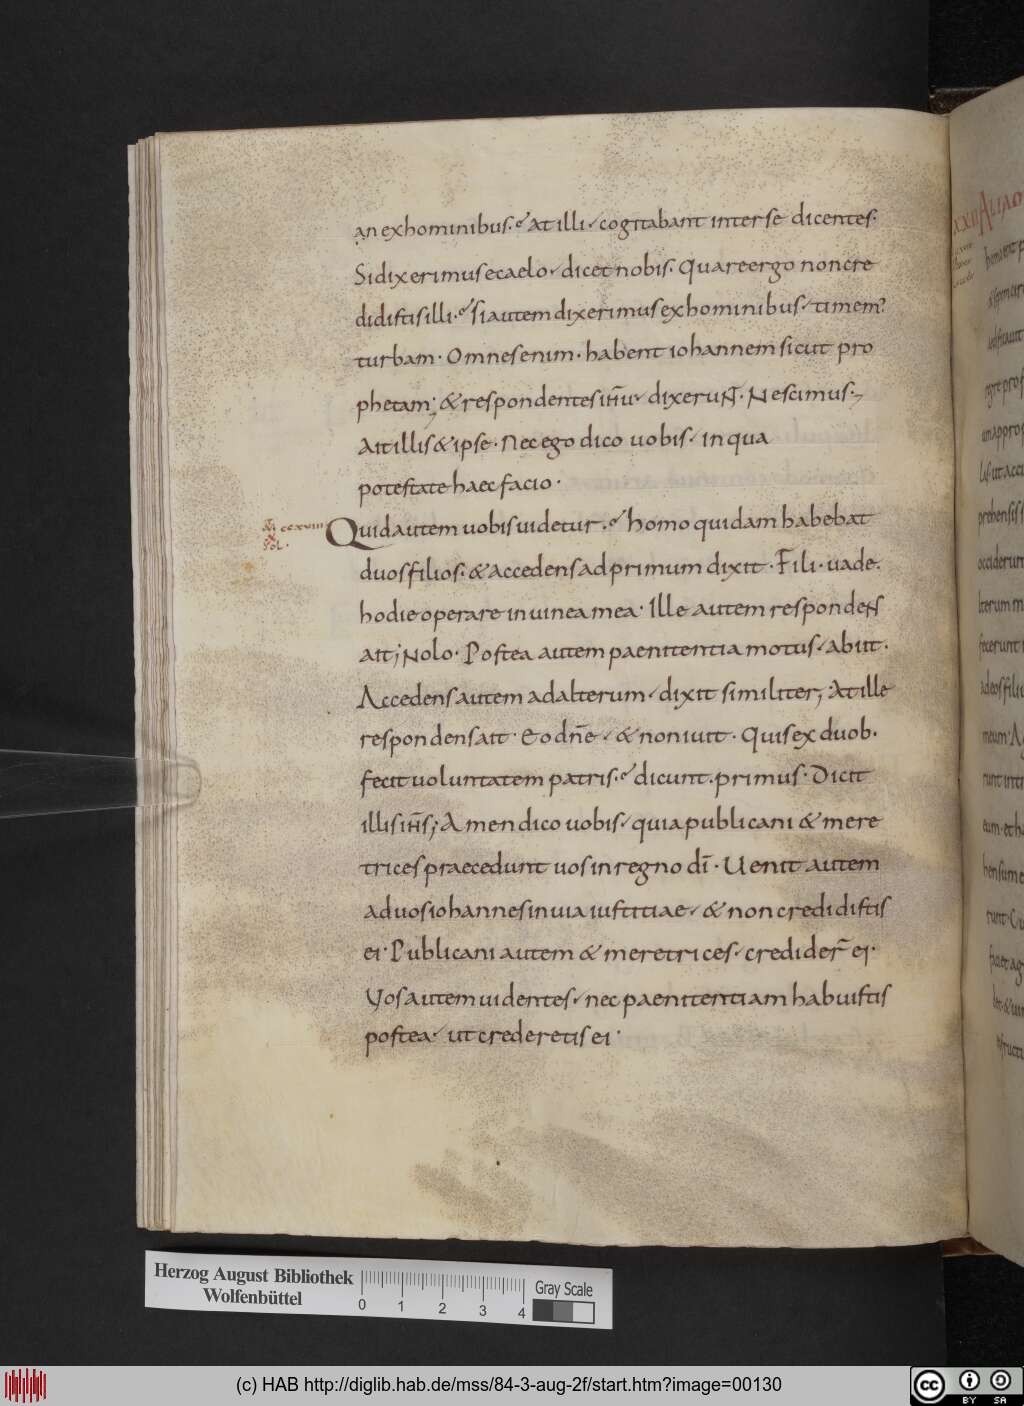 an exhominibus. At illi cogitabant interse dicentes.
Sidixerimus ecaelo. dicet nobis. Quareergo noncre
didistisilli. siautem dixerimus exhominibus. timem?
turbam. Omnesenim. habent iohannem sicut pro
phetam; & respondentes ih̄u dixeruNT. Nescimus.
Aitillis & ipse. Nec ego dico uobis. in qua
potestate haec facio.
Quidautem uobis uidetur. homo quidam habebat
duosfilios. & accedens adprimum dixit. Fili. uade.
hodie operare in uinea mea. Ille autem respondeNS
ait; Nolo. Postea autem paenitentia motus. abiit.
Accedens autem adalterum. dixit similiter; At ille
respondens ait. Eo dn̄e. & non iuit. Quisex duob.
fecit uoluntatem patris. dicunt. primus. Dicit
illis ih̄s; Amen dico uobis. quia publicani & mere
trices praecedunt uos in regno dī. Uenit autem
aduos iohannes in uia iustitiae. & non credidistis
ei. Publicani autem & meretrices. credider̄ ei.
Uos autem uidentes. nec paenitentiam habuistis
postea. ut crederetis ei.
ccxviii
Sol.
XXII ALIAM
Herzog August Bibliothek
Wolfenbüttel
0 1 2 3 4
Gray Scale
(c) HAB http://diglib.hab.de/mss/84-3-aug-2f/start.htm?image=00130
cc BY SA